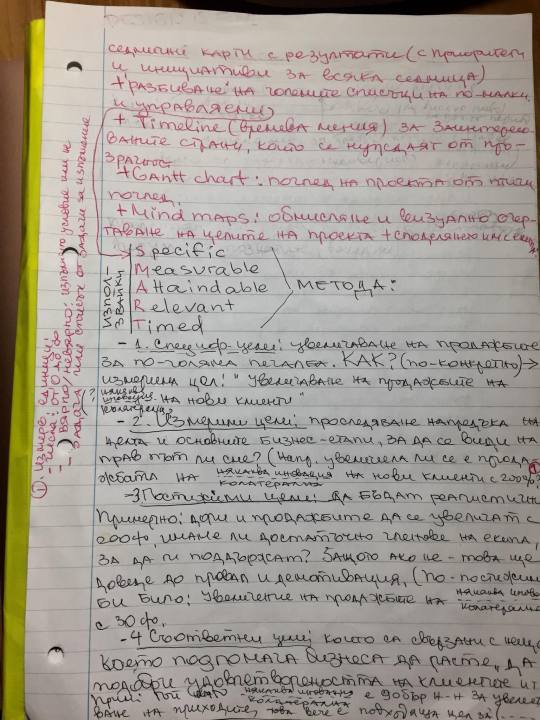 седмични карти с резултати (с приоритети
и инициативи за всяка седмица)
+ разбиване на големите списъци на по-малки
и управляеми
+ Timeline (времева линия) за заинтересо-
ваните страни, които се нуждаят от про-
зрачност
+ Gantt chart: поглед на проекта от птичи
поглед.
+ Mind maps: обмисляне и визуално очер-
таване на целите на проекта + споделянето им с екипа.
ИЗПОЛ-
ЗВАЙКИ
Specific
Measurable
Attaindable
Relevant
Timed
МЕТОДА:
- 1. Специф. цели: увеличаване на продажбите
за по-голяма печалба. КАК? (по-конкретно) →
измерима цел: "Увеличаване на продажбите на
някаква
иновация
колатерална
на нови клиенти"
- 2. Измерими цели: проследяване напредъка на
целта и основните бизнес-етапи, за да се види на
прав път ли сме? (напр. увеличила ли се е продаж-
жбата на някаква иновация колатерална на нови клиенти с 200%?
- 3 Постижими цели: да бъдат реалистични
Примерно: дори и продажбите да се увеличат с
200%, имаме ли достатъчно членове на екипа,
за да ги поддържат? Защото ако не - това ще
доведе до провал и демотивация, (по-постижимо
би било: Увеличение на продажбите на някаква инов.
колатерална
с 30%.
- 4 Съответни цели които са свързани с нещо
което подпомага бизнеса да расте, да
подобри удовлетвореността на клиентите и т
някаква иновация
колатерална
е добър н-н за увелича-
ване на приходите, това вече е подходяща цел
1. измерв. единици:
- числа: от 0 до
- вярно/невярно: изпълнено условие или не
- Задача или списък от задачи за изпълнение